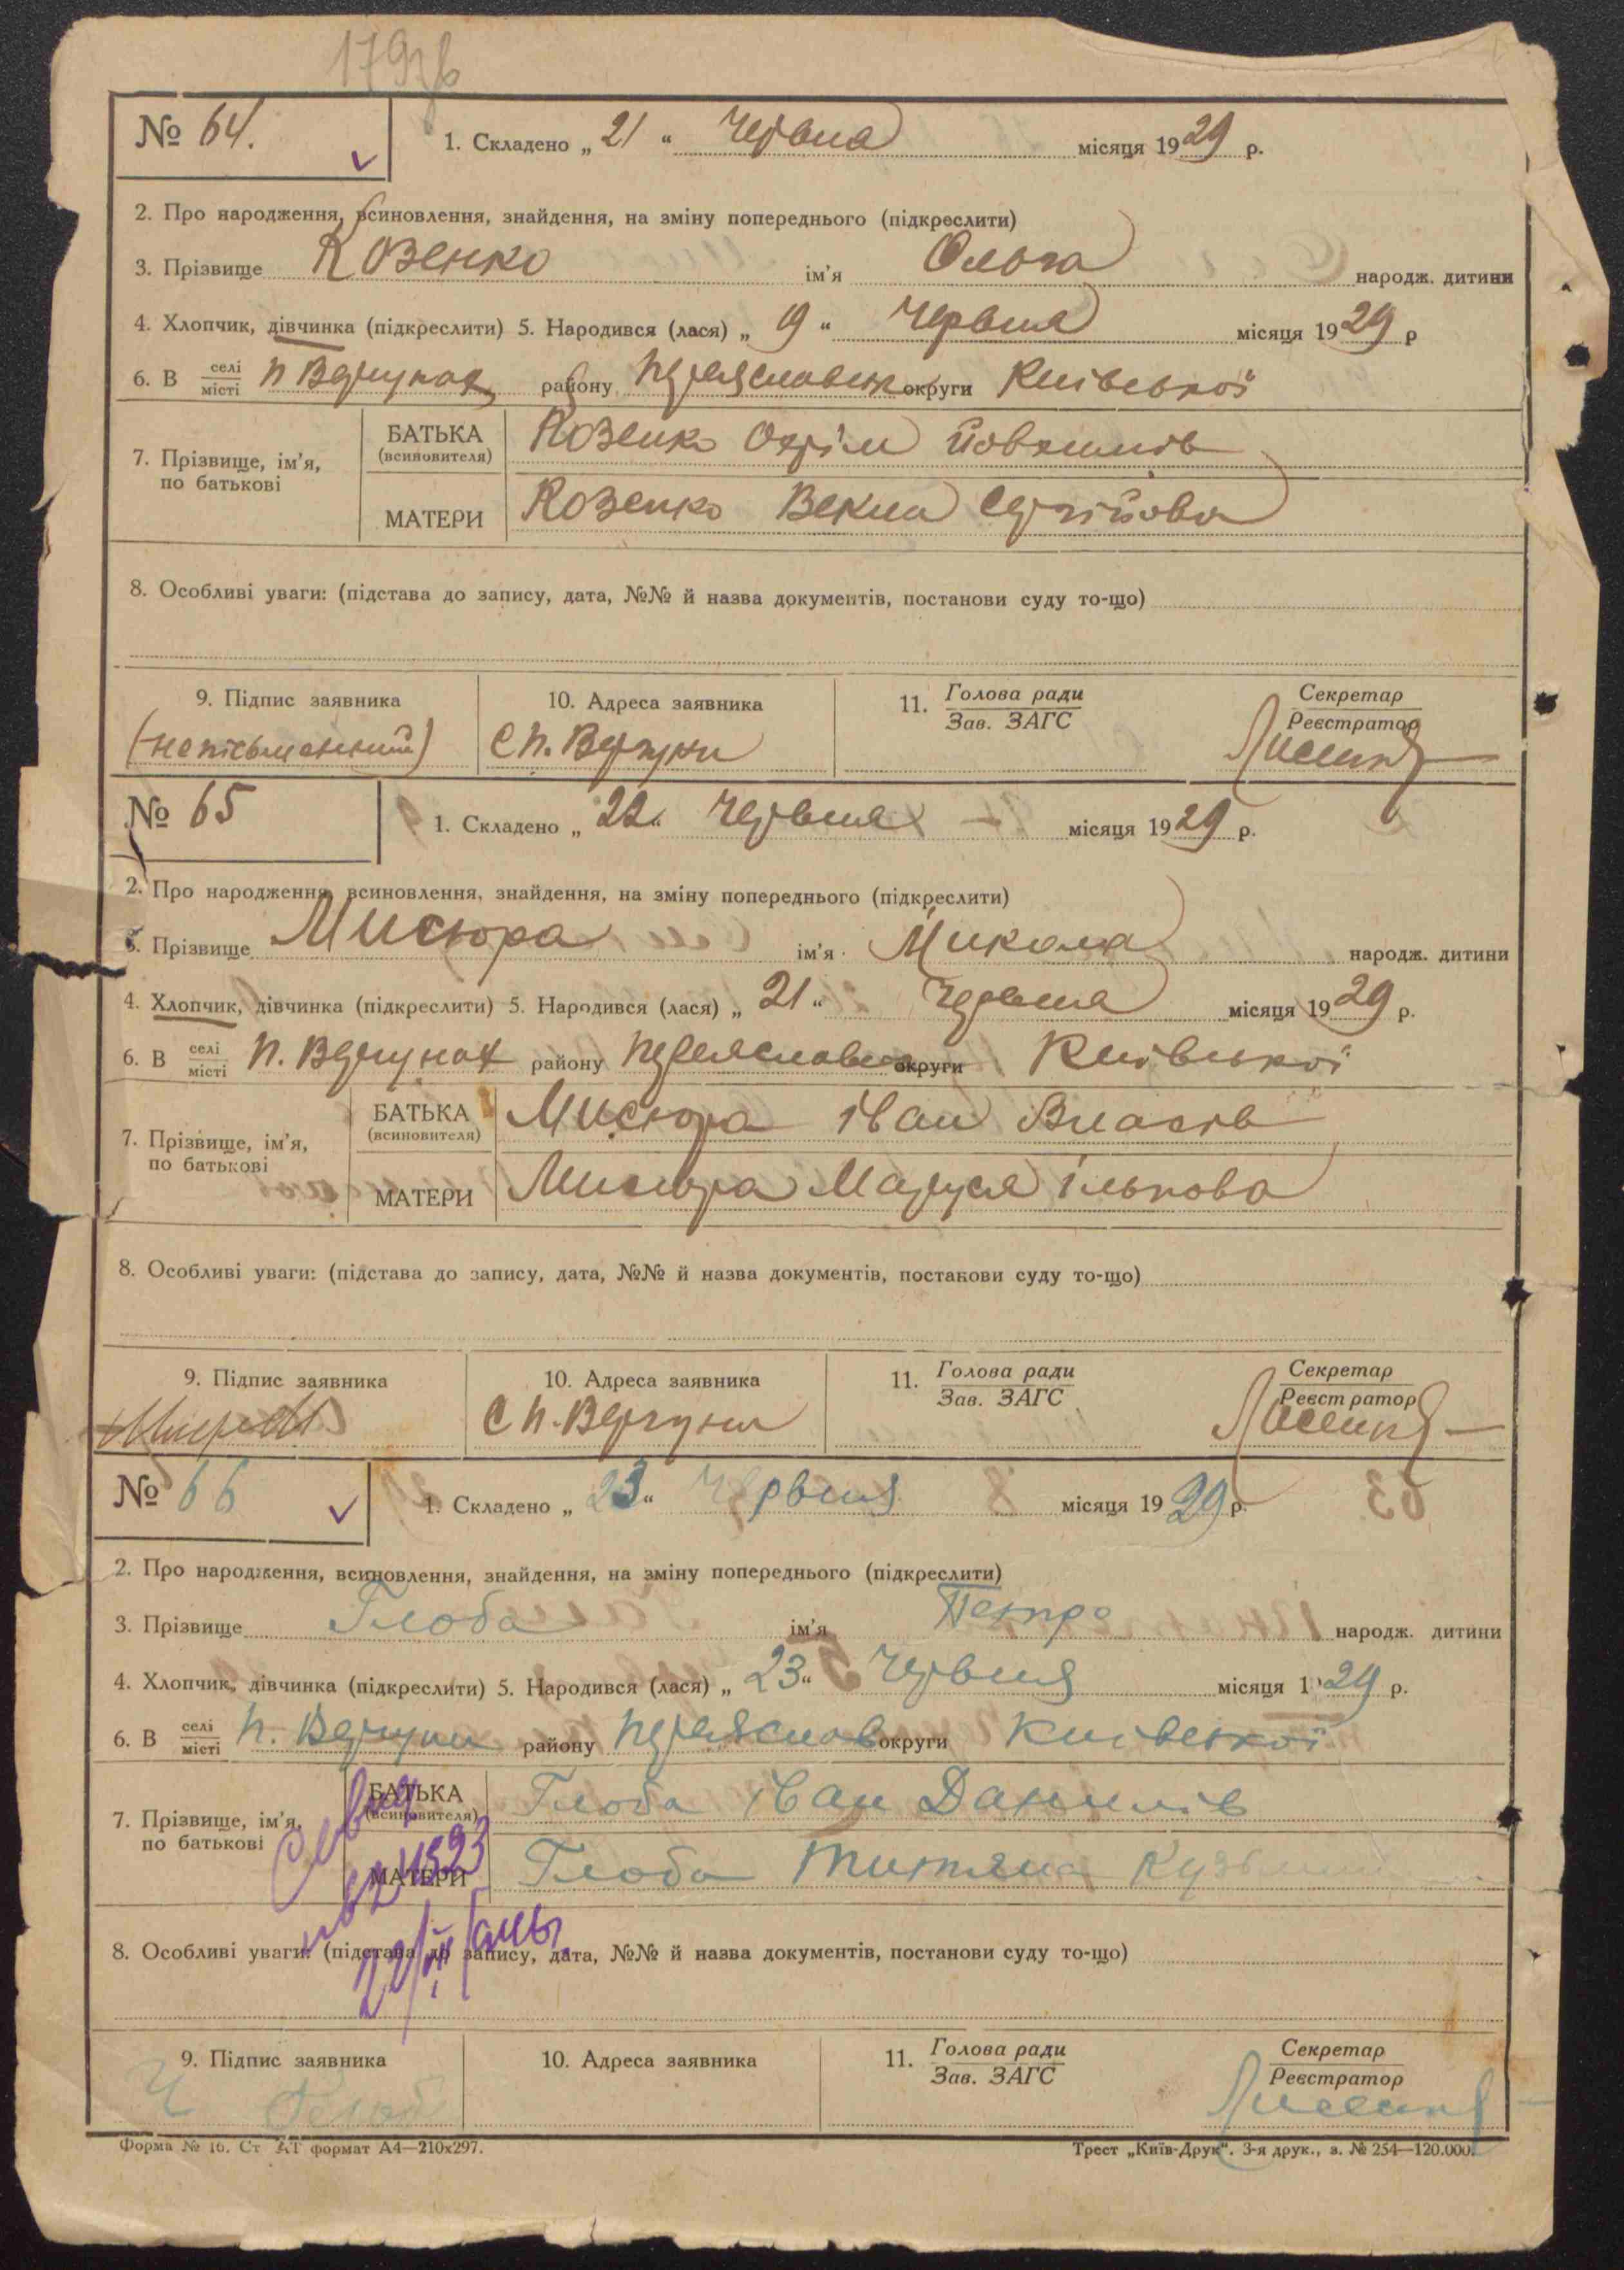 № 64.
1. Складено „ 21 “ Червня місяця 1929 р.
2. Про народження, всиновлення, знайдення, на зміну попереднього (підкреслити)
3. Прізвище Козенко ім'я Ольга народж. дитини
4. Хлопчик, дівчинка (підкреслити) 5. Народився (лася) „ 19 “ Червня місяця 1929 р
6. В селі місті П Вергунах району Переяславськ округи Київської
7. Прізвище, ім'я, по батькові
БАТЬКА (всиновителя) Козенко Охрім
МАТЕРИ Козенко Векла Сергійова
8. Особливі уваги: (підстава до запису, дата, №№ й назва документів, постанови суду то-що)
9. Підпис заявника 10. Адреса заявника 11. Голова ради Зав. ЗАГС Секретар Реєстратор
(неписьменний) С П. Вергуни
№ 65
1. Складено „ 22 “ Червня місяця 1929 р.
2. Про народження, всиновлення, знайдення, на зміну попереднього (підкреслити)
3. Прізвище Мисюра ім'я Микола народж. дитини
4. Хлопчик, дівчинка (підкреслити) 5. Народився (лася) „ 21 “ Червня місяця 1929 р.
6. В селі місті П. Вергунах району Переяславсь округи Київської
7. Прізвище, ім'я, по батькові
БАТЬКА (всиновителя) Мисюра Іван Власів
МАТЕРИ Мисюра Маруся Ількова
8. Особливі уваги: (підстава до запису, дата, №№ й назва документів, постанови суду то-що)
9. Підпис заявника 10. Адреса заявника 11. Голова ради Зав. ЗАГС Секретар Реєстратор
С П. Вергуни
№ 66
1. Складено „ 23 “ Червня місяця 1929 р.
2. Про народження, всиновлення, знайдення, на зміну попереднього (підкреслити)
3. Прізвище Глоба ім'я Петро народж. дитини
4. Хлопчик, дівчинка (підкреслити) 5. Народився (лася) „ 23 “ Червня місяця 1929 р.
6. В селі місті П. Вергуни району Переяслав округи Київської
7. Прізвище, ім'я, по батькові
БАТЬКА (всиновителя) Глоба Іван Данилів
МАТЕРИ Глоба Титяна
8. Особливі уваги: (підстава до запису, дата, №№ й назва документів, постанови суду то-що)
9. Підпис заявника 10. Адреса заявника 11. Голова ради Зав. ЗАГС Секретар Реєстратор
Форма № 16. Ст АТ формат А4—210х297. Трест „Київ-Друк“. 3-я друк., з. № 254—120.000.